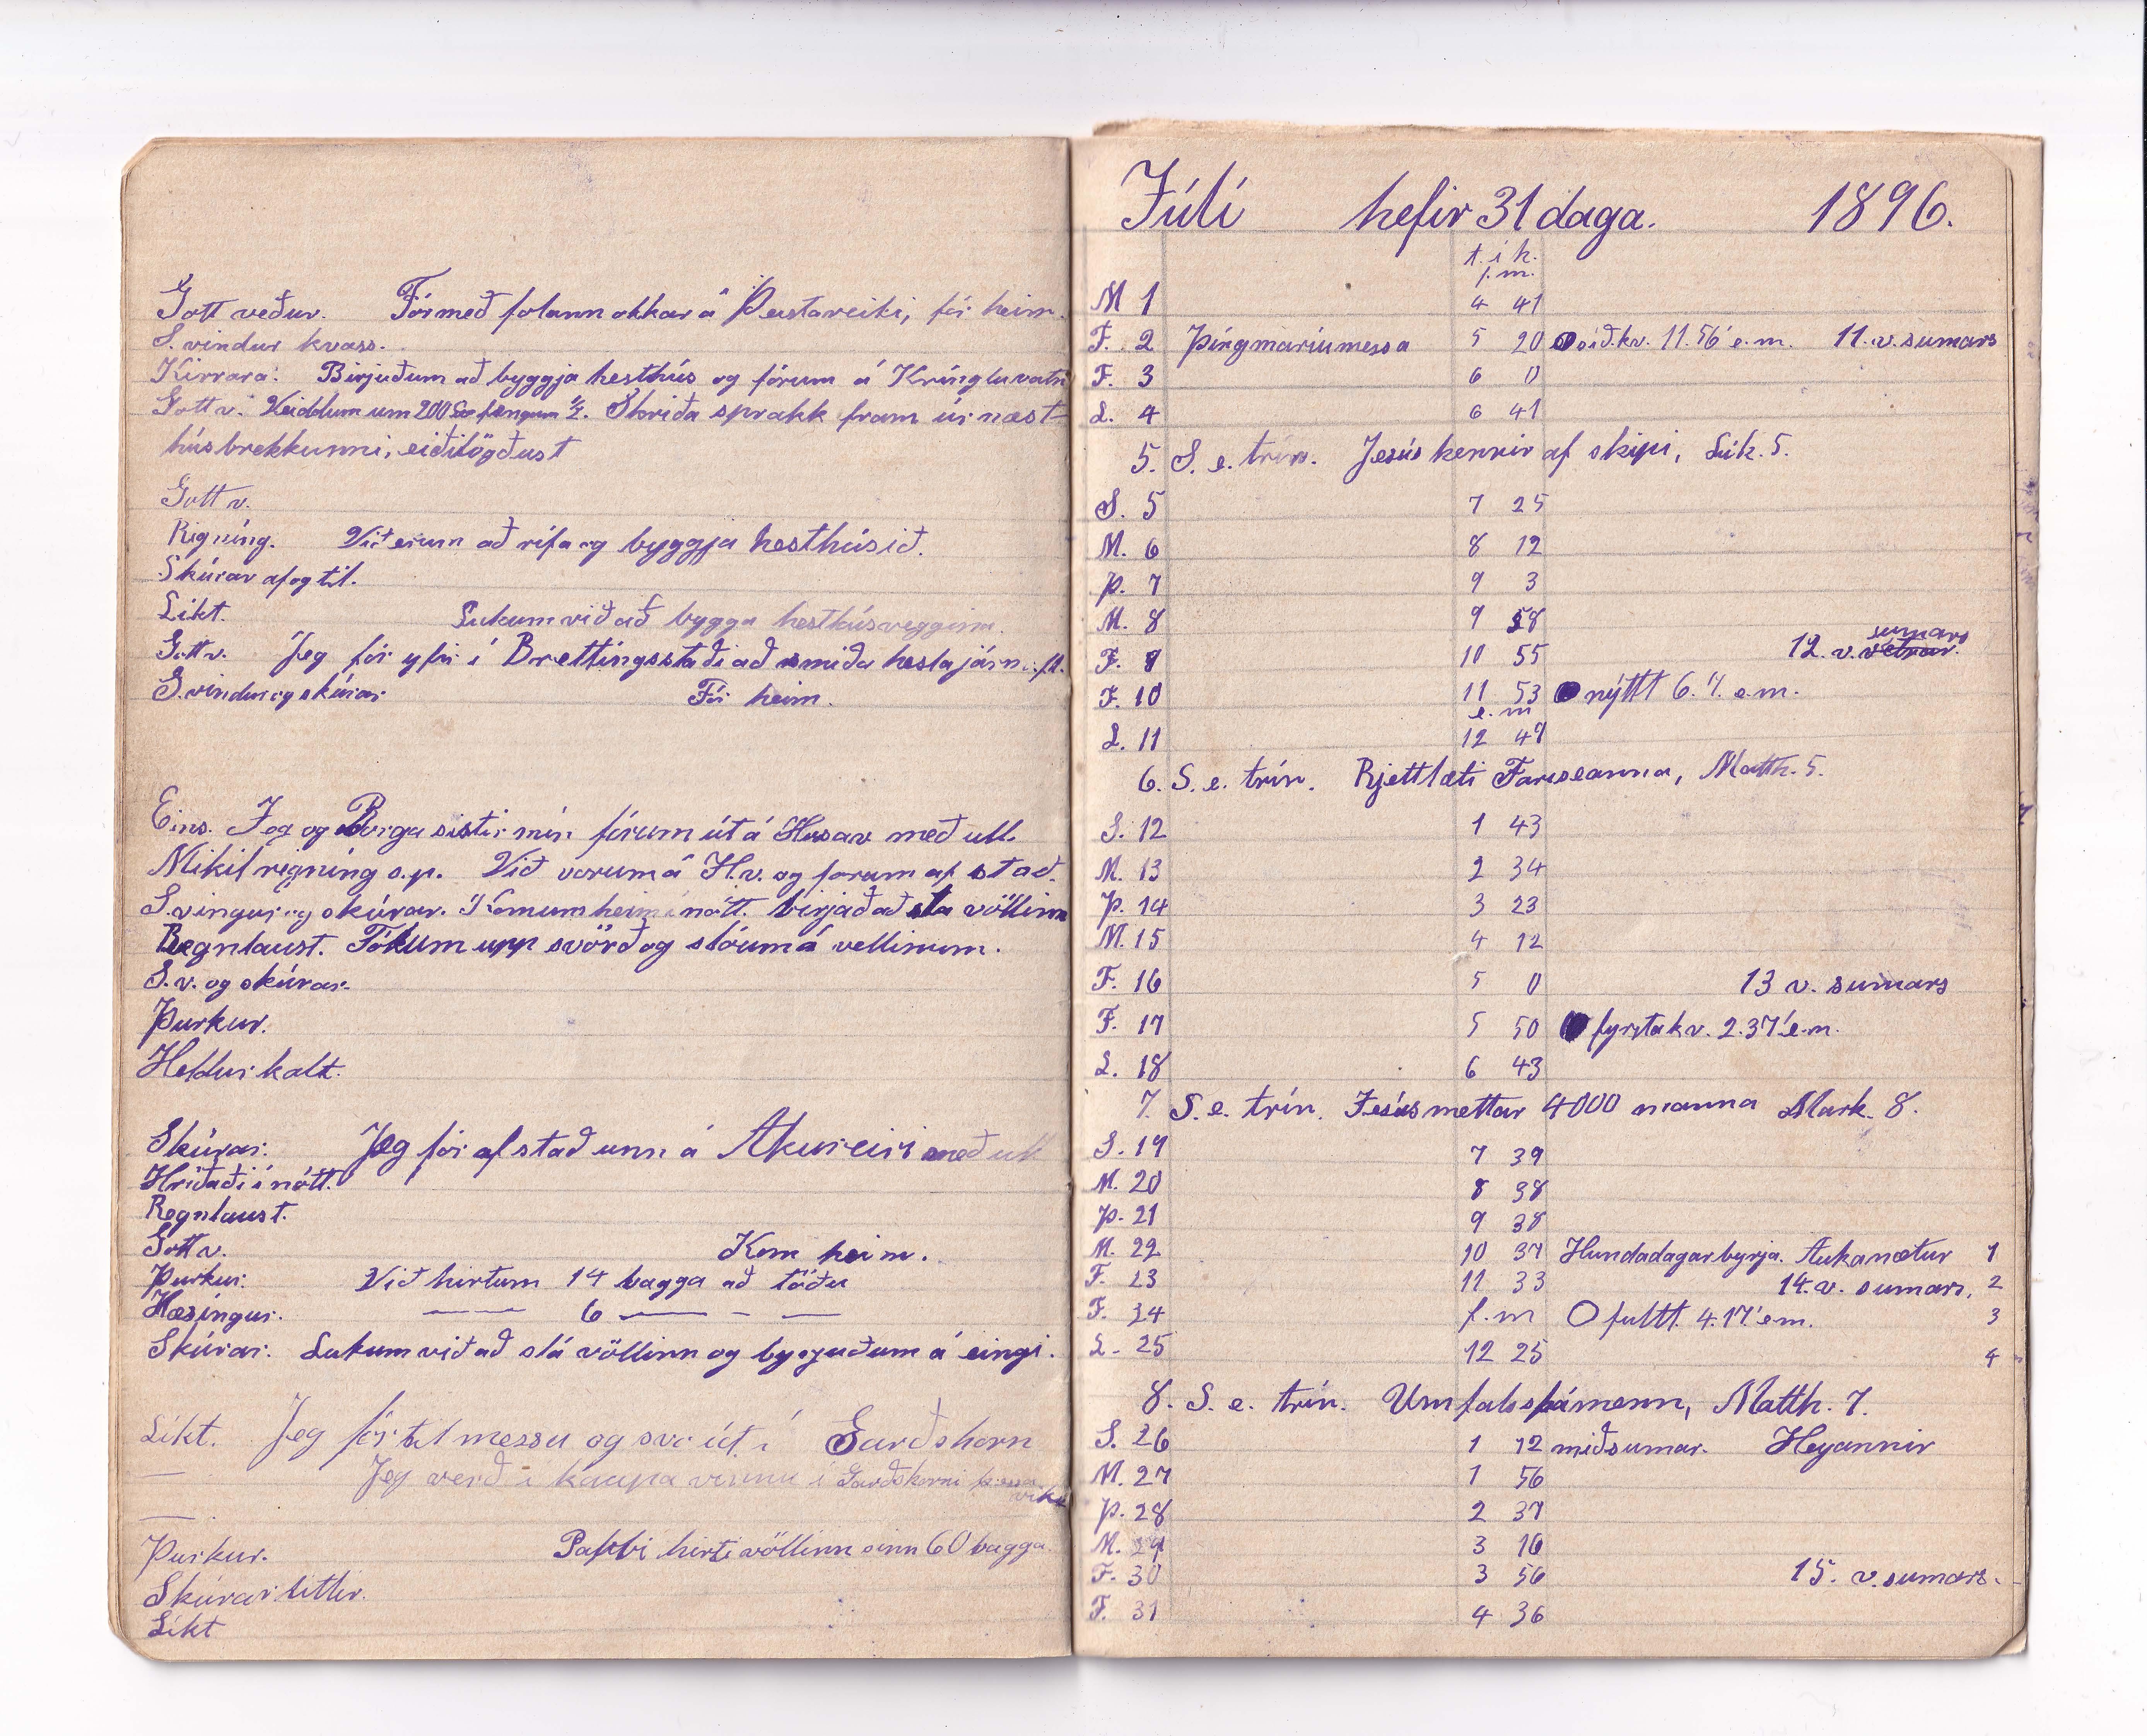 Gott veður. Fór með folann okkar á Þeistareiki, fór heim.
S. vindur kvass.
Kirrara. Birjuðum að byggja hesthús og fórum á Kringluvatn
Gott v. Veiddum um 200 fengum ½. Skriða sprakk fram úr naust-
húsbrekkunni, eiðilögðust
Gott v.
Rigníng. Við erum að rífa og byggja hesthúsið.
Skúrar af og til.
Líkt. Lukum við að bygga hesthúsveggina.
Gott v. Jeg fór yfir í Brettingsstaði að smiða hestajárn. fl.
S. vindur og skúrar Fór heim.
Eins. Jeg og Borga sistir mín fórum út á Husav með ull.
Mikil rigníng s.p. Við vorum á H.v. og forum af stað.
S. vingur og skúrar. Komum heim í nótt. birjað að sla völlinn
Regnlaust. Tókum upp svörð og slóum á vellinum.
S. v. og skúrar.
Þurkur.
Heldur kalt.
Skúrar. Jeg fór af stað unn á Akureiri með ull
Hriðaði í nótt.
Regnlaust.
Gott v. Kom heim.
Þurkur. Við hirtum 14 bagga að töðu
Hæsíngur. —— 6 —— – ——
Skúrar. Lukum við að slá völlinn og byrjuðum á eingi.
Líkt. Jeg fór til messu og svo út í Garðshorn
— Jeg verð í kaupa vinnu í Garðshorni þessa
viku
—
Þurkur. Pabbi hirti völlinn sinn 60 bagga.
Skúrar litlir.
Líkt
Júlí hefir 31 daga. 1896.
t. í h.
f. m.
M 1 4 41
F. 2 Þingmaríumessa 5 20 síð. kv. 11.56' e.m. 11. v. sumars
F. 3 6 0
L. 4 6 41
5. S. e. trín. Jesús kennir af skipi, Lúk. 5.
S. 5 7 25
M. 6 8 12
Þ. 7 9 3
M. 8 9 58
sumars
F. 9 10 55 12. v. vetrar.
F. 10 11 53 nýtt 6.4. e.m.
e. m
L. 11 12 49
6. S. e. trín. Rjettlæti Fariseanna, Matth. 5.
S. 12 1 43
M. 13 2 34
Þ. 14 3 23
M. 15 4 12
F. 16 5 0 13 v. sumars
F. 17 5 50 fyrsta kv. 2.37' e.m.
L. 18 6 43
7. S. e. trín. Jesús mettar 4000 manna Mark. 8.
S. 19 7 39
M. 20 8 38
Þ. 21 9 38
M. 22 10 37 Hundadagar byrja. Aukanætur 1
F. 23 11 33 14. v. sumars, 2
F. 24 f. m fullt. 4.17' e m. 3
L. 25 12 25 4
8. S. e. trín. Um falsspámenn, Matth. 7.
S. 26 1 12 miðsumar. Heyannir
M. 27 1 56
Þ. 28 2 37
M. 29 3 16
F. 30 3 56 15. v. sumars.
F. 31 4 36